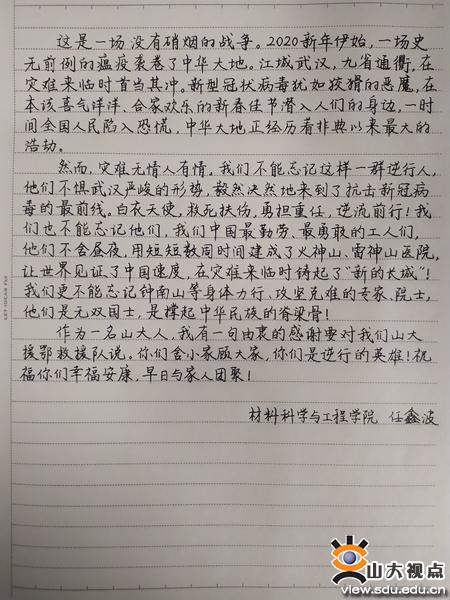 这是一场没有硝烟的战争。2020新年伊始，一场史
无前例的瘟疫袭卷了中华大地。江城武汉，九省通衢，在
灾难来临时首当其冲。新型冠状病毒犹如狡猾的恶魔，在
本该喜气洋洋、合家欢乐的新春佳节潜入人们的身边，一时
间全国人民陷入恐慌，中华大地正经历着非典以来最大的
浩劫。
然而，灾难无情人有情。我们不能忘记这样一群逆行人，
他们不惧武汉严峻的形势，毅然决然地来到了抗击新冠病
毒的最前线。白衣天使，救死扶伤，勇担重任，逆流前行！我
们也不能忘记他们，我们中国最勤劳、最勇敢的工人们，
他们不舍昼夜，用短短数周时间建成了火神山、雷神山医院，
让世界见证了中国速度，在灾难来临时铸起了“新的长城”！
我们更不能忘记钟南山等身体力行、攻坚克难的专家、院士，
他们是无双国士，是撑起中华民族的脊梁骨！
作为一名山大人，我有一句由衷的感谢要对我们山大
援鄂救援队说。你们舍小家顾大家，你们是逆行的英雄！祝
福你们幸福安康，早日与家人团聚！
材料科学与工程学院 任鑫波
LET IDEAS FLY
山大视点
view.sdu.edu.cn